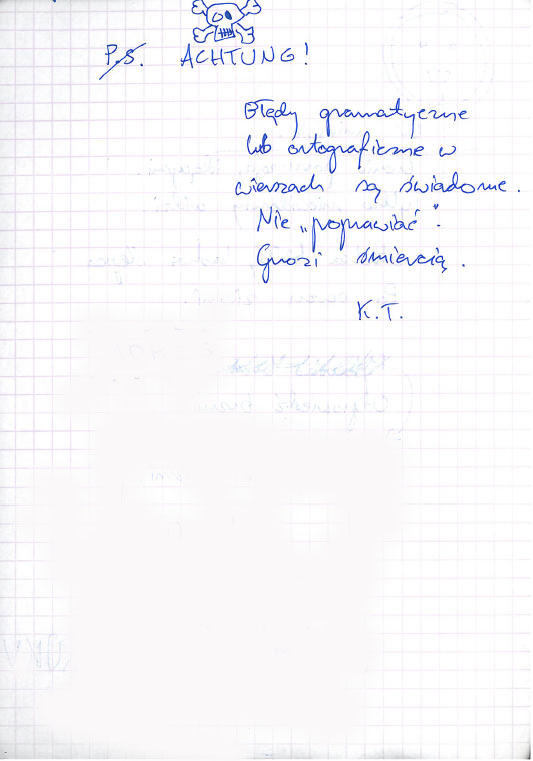 P.S. ACHTUNG!
Błędy gramatyczne
lub ortograficzne w
wierszach są świadome.
Nie „poprawiać".
Grozi śmiercią.
K.T.